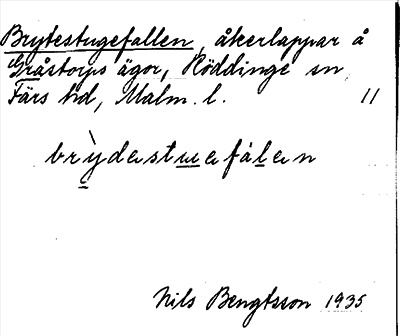 Brytestugefallen, åkerlappar å
Gråstorps ägor, Röddinge sn,
Färs hd, Malm. l. 11
brỳdastuafálan
Nils Bengtsson 1935